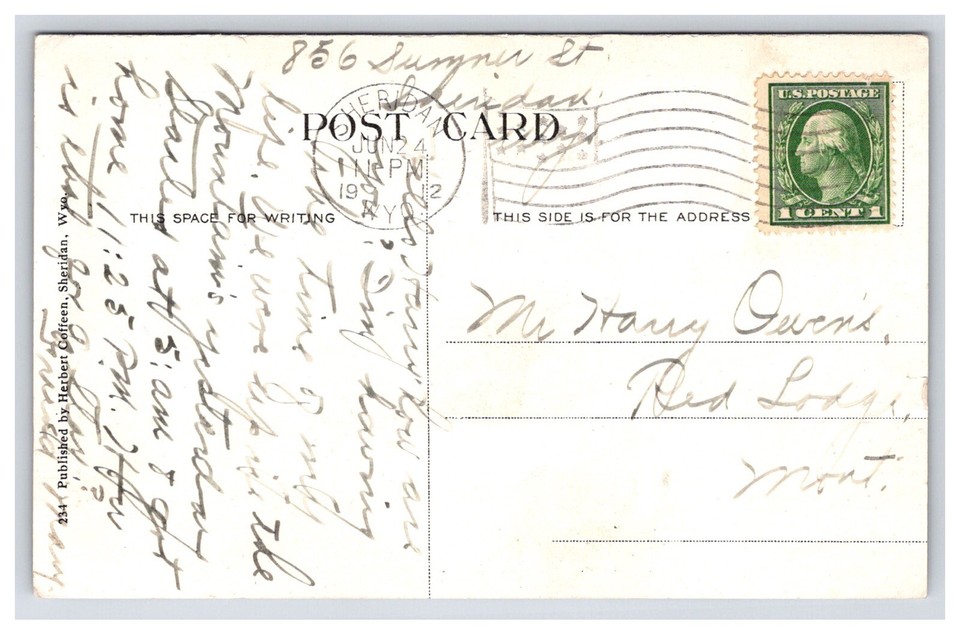 856 Sumner St
Sheridan
Wyo
POST CARD
SHERIDAN
JUN 24
11 PM
1912
WYO.
U.S. POSTAGE
1 CENT 1
THIS SPACE FOR WRITING
THIS SIDE IS FOR THE ADDRESS
Mr Harry Owens,
Red Lodge,
Mont.
Hello Harry how are
you? Im having
the time of my
life. We were up in the
Mountains yesterday
Started at 5; am & got
home 11:25 P.M. How
is
234 Published by Herbert Coffeen, Sheridan, Wyo.